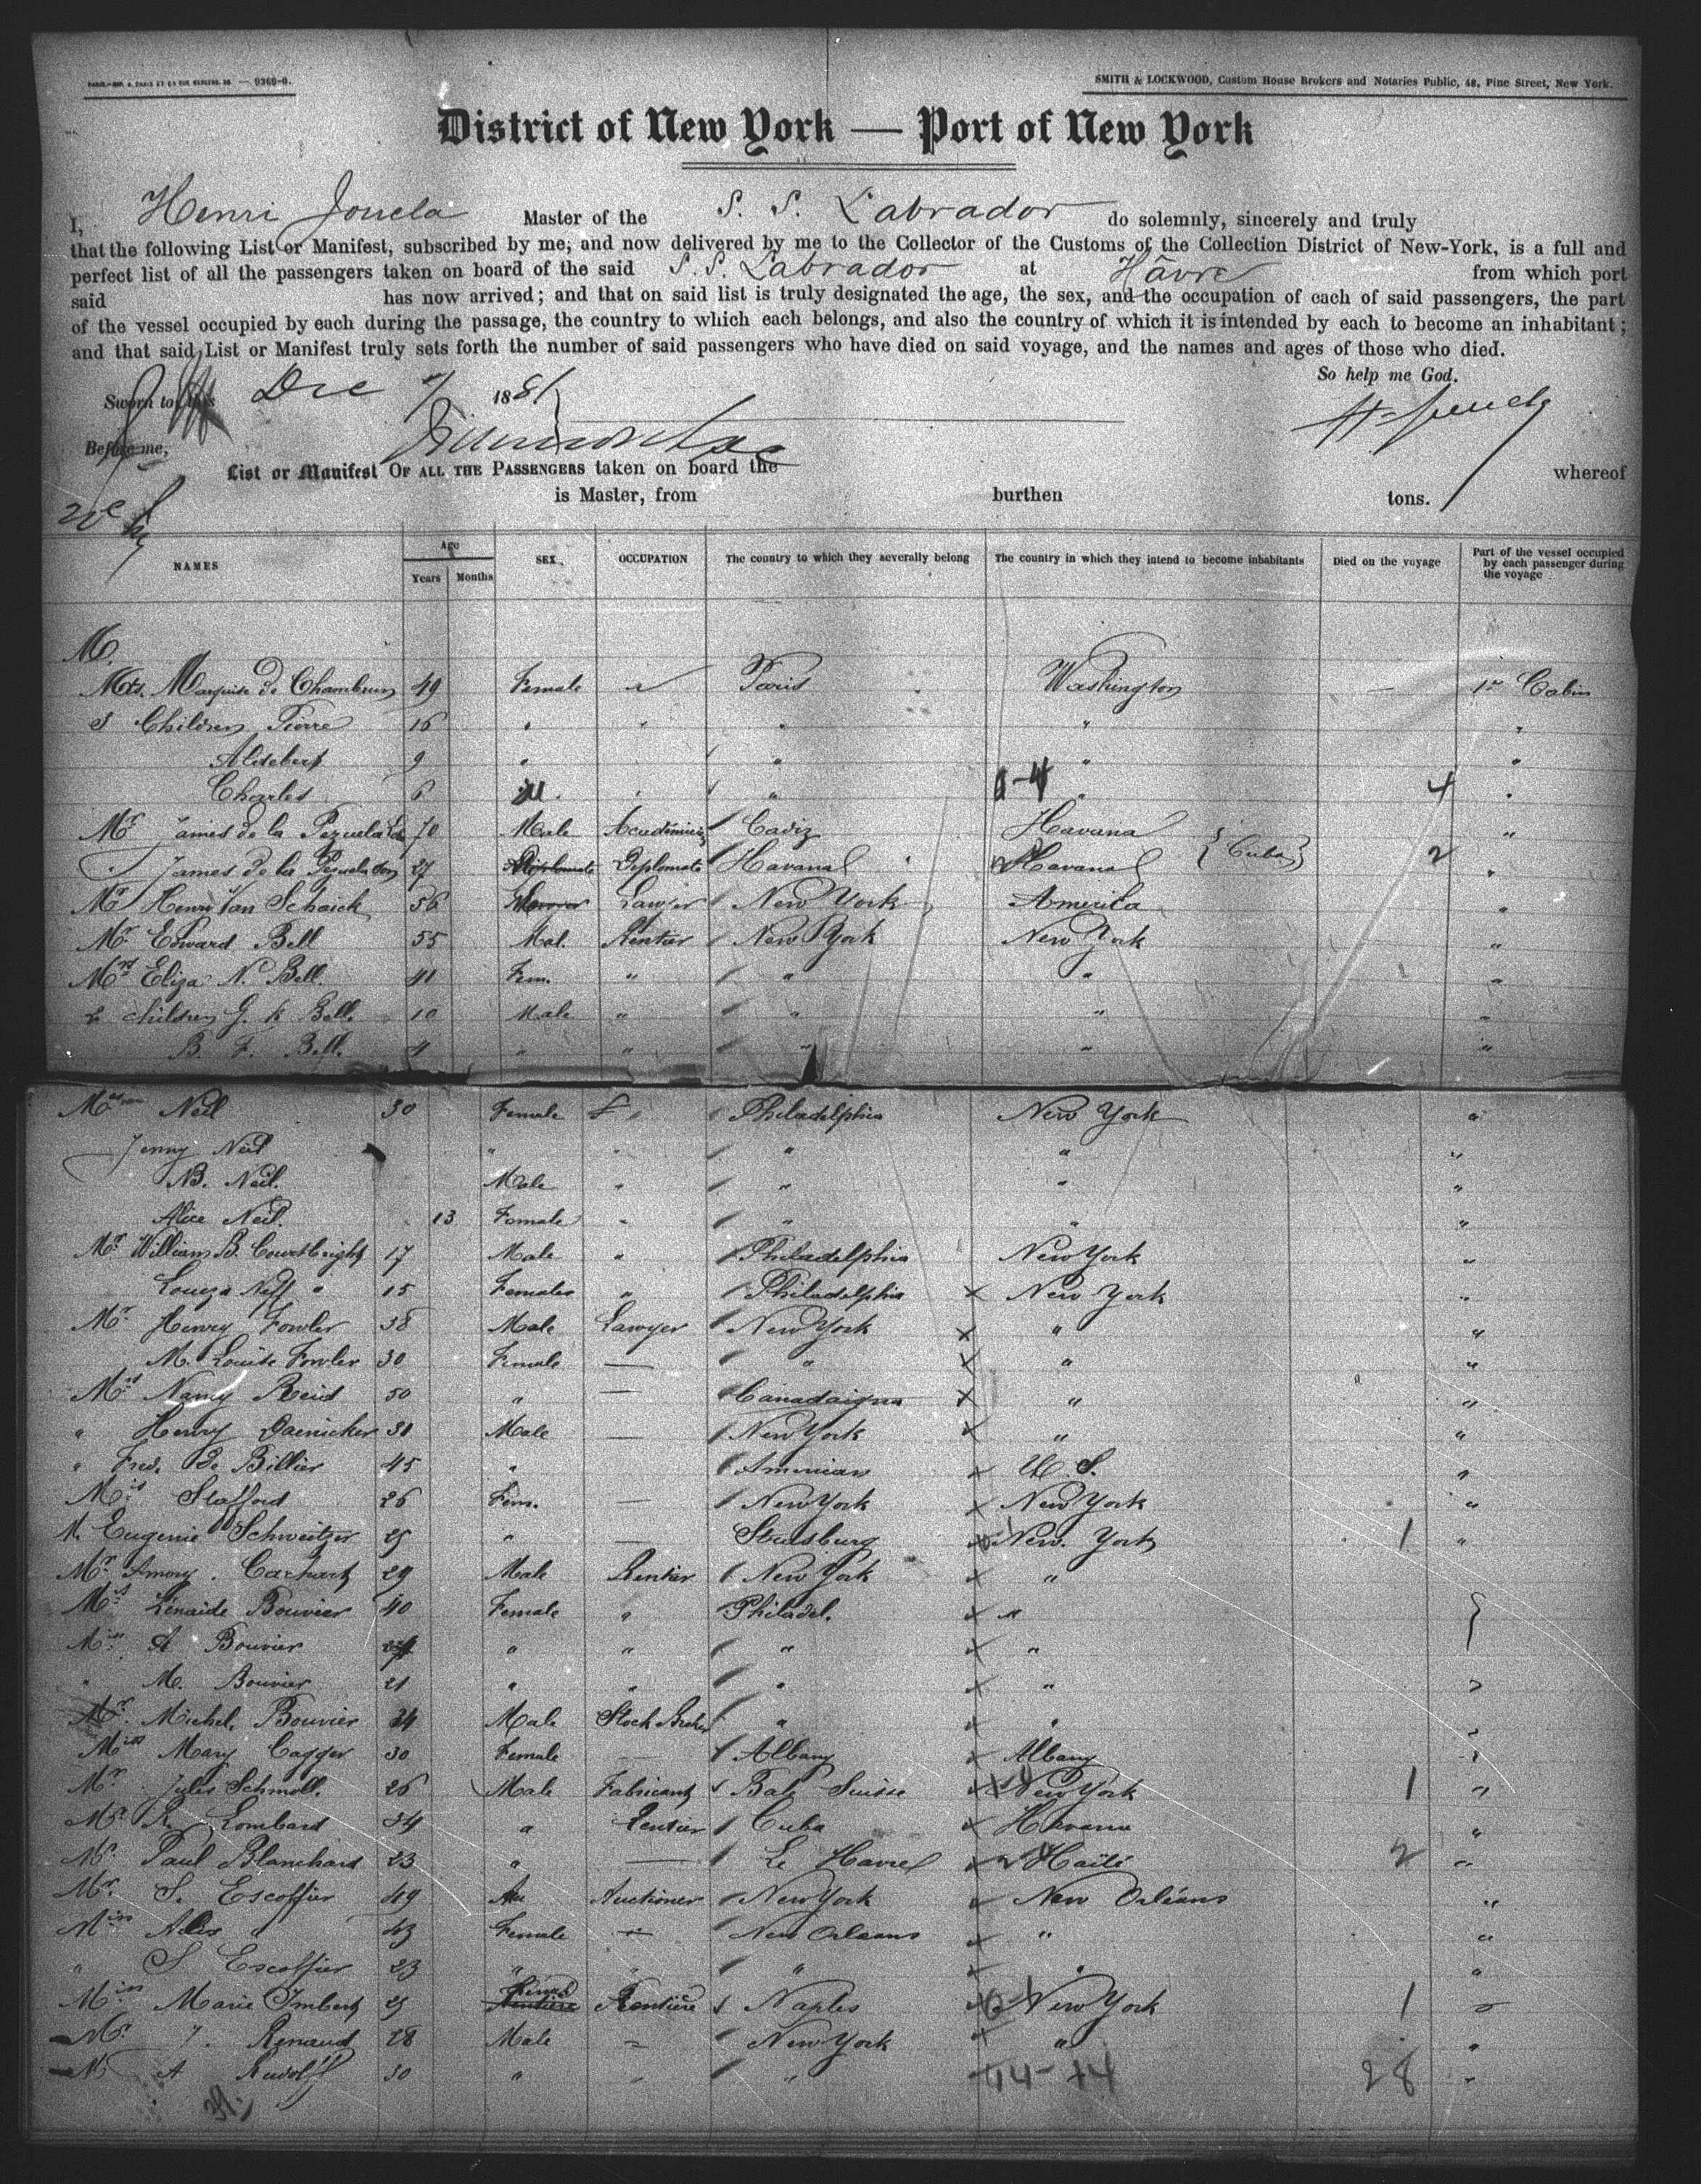 9369-9.
SMITH & LOCKWOOD, Custom House Brokers and Notaries Public, 48, Pine Street, New York.
District of New York — Port of New York
I, Henri Jouela Master of the S. S. Labrador do solemnly, sincerely and truly
that the following List or Manifest, subscribed by me, and now delivered by me to the Collector of the Customs of the Collection District of New-York, is a full and
perfect list of all the passengers taken on board of the said S. S. Labrador at Hâvre from which port
said has now arrived; and that on said list is truly designated the age, the sex, and the occupation of each of said passengers, the part
of the vessel occupied by each during the passage, the country to which each belongs, and also the country of which it is intended by each to become an inhabitant;
and that said List or Manifest truly sets forth the number of said passengers who have died on said voyage, and the names and ages of those who died.
So help me God.
Sworn to this Dec 188
Before me,
List or Manifest OF ALL THE PASSENGERS taken on board the whereof
is Master, from burthen tons.
NAMES Age Years Months SEX. OCCUPATION The country to which they severally belong The country in which they intend to become inhabitants Died on the voyage Part of the vessel occupied by each passenger during the voyage
M.
Mrs. Marquise de Chambrun 49 Female " Paris Washington — 1re Cabin
3 Children Pierre 16 " " " " "
Aldebert 9 " " " "
Charles 6 M. " " " 4 "
Mr James de la Pezuela 70 Male Cadiz Havana "
" James de la Pezuela son 27 Diplomate Havana Havana } Cuba } 2 "
Mr Henry Van Schaick 56 Lawyer New York America "
Mr. Edward Bell 55 Mal. Rentier New York New York "
Mrs Eliza N. Bell. 41 Fem. " " " "
2 children G. K Bell. 10 Male " " " "
B. F. Bell. 4 " " " " "
Mrs Neil 30 Female " Philadelphia New York "
Jenny Neil " " " " "
B. Neil. Male " " " "
Alice Neil. 13 Female " " " "
Mr William B. Courtbright 17 Male " Philadelphia New York "
Louiza Neff " 15 Females " Philadelphia x New York "
Mr. Henry Fowler 38 Male Lawyer New York x " "
M. Louise Fowler 30 Female — " x " "
Mrs Nancy Reid 50 " — Canadaigua x " "
" Henry Daenicker 31 Male — New York x " "
" Fred. De Billier 45 " American x U. S. "
Miss Stafford 26 Fem. — New York x New York "
M. Eugenie Schweitzer 25 " — Strasburg New York 1 "
Mr Amory Carhart 29 Male Rentier New York x " "
Mrs Zénaide Bouvier 40 Female " Philadel. x "
Miss A Bouvier " " " x "
" M. Bouvier 21 " " " x "
Mr. Michel. Bouvier 34 Male Stock Broker " x "
Miss Mary Cagger 30 Female — Albany x Albany "
Mr. Jules Schmoll. 26 Male Fabricant Bale Suisse New York 1 "
Mr R. Lombard 34 " Rentier Cuba x Havana "
Mr. Paul Blanchard 23 " — Le Havre x Haïti 2 "
Mr. S. Escoffier 49 Auctioner New York x New Orléans "
Miss Alix " 43 Female — New Orleans x " "
" S Escoffier 23 " " " x " "
Miss Marie Imbert 25 Rentière Naples New York 1 "
Mr. J. Renaud 28 Male " New York x " "
Mr A Rudolff 30 " " " 28 "